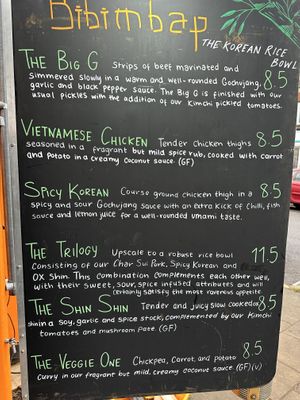 Bibimbap
THE KOREAN RICE
BOWL
THE BIG G Strips of beef marinated and 8.5
simmered slowly in a warm and well-rounded Gochujang,
garlic and black pepper sauce. The Big G is finished with our
usual pickles with the addition of our Kimchi pickled tomatoes.
VIETNAMESE CHICKEN Tender chicken thighs 8.5
seasoned in a fragrant but mild spice rub, cooked with carrot
and potato in a creamy coconut sauce. (GF)
SPICY KOREAN Course ground chicken thigh in a 8.5
spicy and sour Gochujang sauce with an extra kick of chilli, fish
sauce and lemon juice for a well-rounded umami taste.
THE TRILOGY Upscale to a robust rice bowl 11.5
consisting of our Char Sui Pork, Spicy Korean and
Ox Shin. This combination complements each other well,
with their sweet, sour, spice infused attributes and will
certainly satisfy the most ravenous appetite.
THE SHIN SHIN Tender and juicy slow cooked ox 8.5
shin in a soy, garlic and spice stock, complemented by our Kimchi
tomatoes and mushroom pate. (GF)
THE VEGGIE ONE Chickpea, carrot, and potato 8.5
curry in our fragrant but mild, creamy coconut sauce (GF)(V)